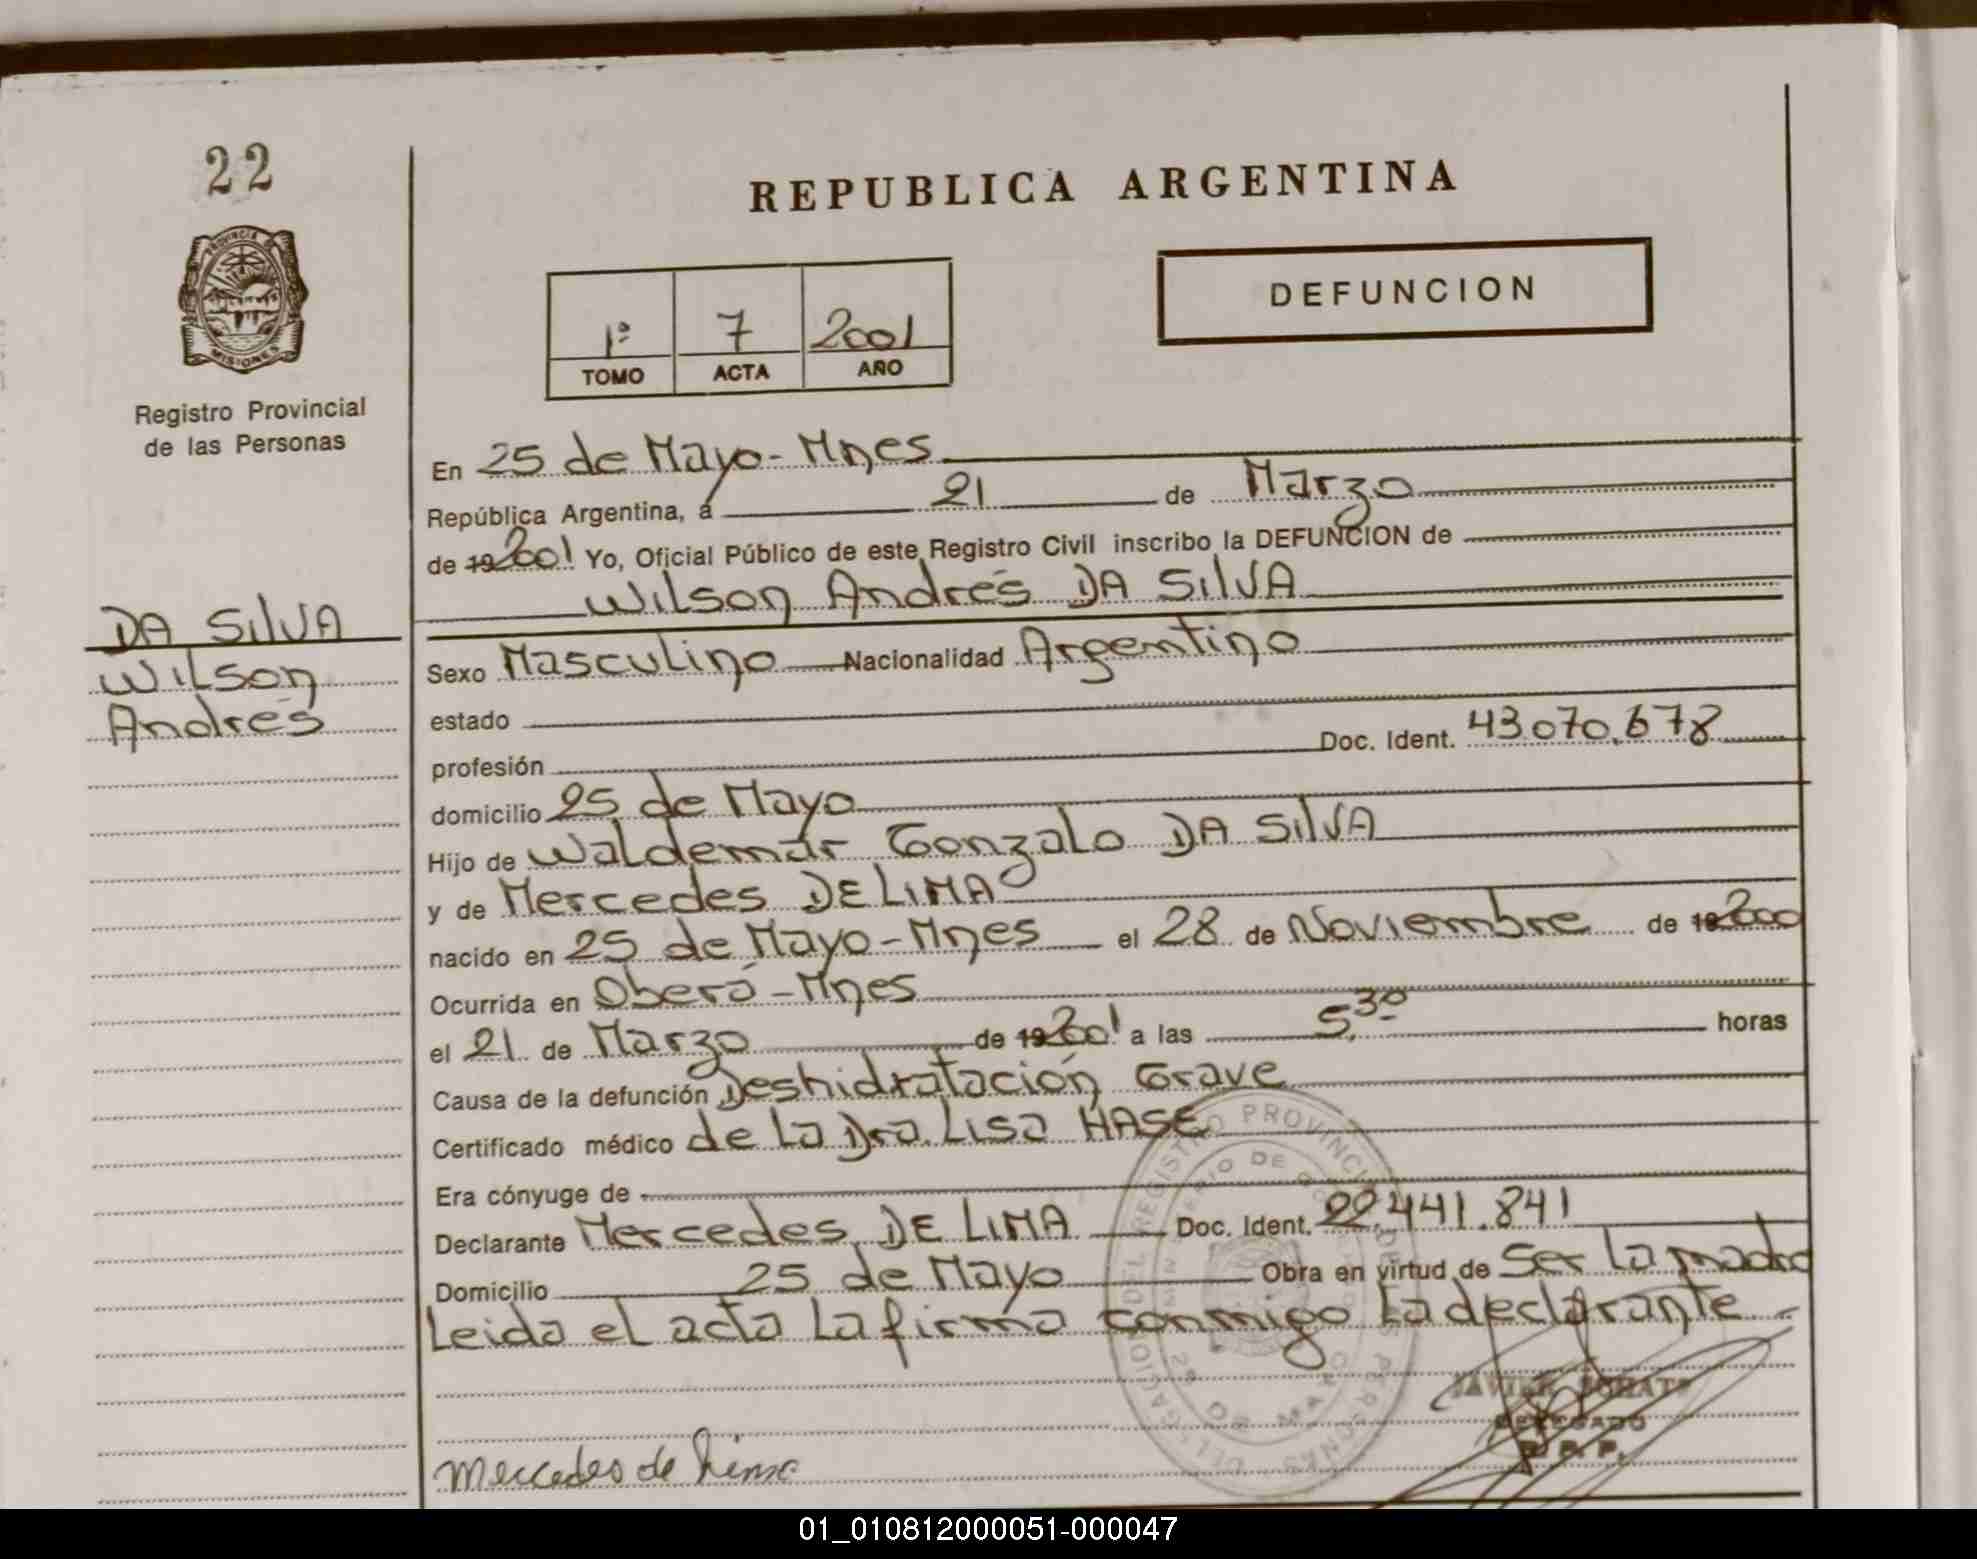 22
REPUBLICA ARGENTINA
PROVINCIA DE
MISIONES
Registro Provincial
de las Personas
1º 7 2001
TOMO ACTA AÑO
DEFUNCION
En 25 de Mayo - Mnes
República Argentina, a 21 de Marzo
de 19 2001 Yo, Oficial Público de este Registro Civil inscribo la DEFUNCION de
Wilson Andrés DA SILVA
DA SILVA
Wilson
Andrés
Sexo Masculino Nacionalidad Argentino
estado
profesión Doc. Ident. 43.070.678
domicilio 25 de Mayo
Hijo de Waldemar Gonzalo DA SILVA
y de Mercedes DE LIMA
nacido en 25 de Mayo - Mnes el 28 de Noviembre de 19 2000
Ocurrida en Oberá - Mnes
el 21 de Marzo de 19 2001 a las 5,30 horas
Causa de la defunción Deshidratación Grave
Certificado médico de la Dra Lisa HASE
Era cónyuge de
Declarante Mercedes DE LIMA Doc. Ident. 22.441.841
Domicilio 25 de Mayo Obra en virtud de Ser la madre
Leida el acta la firma conmigo la declarante
JAVIER
DELEGADO
R. P. P.
Mercedes de Lima
01_010812000051-000047